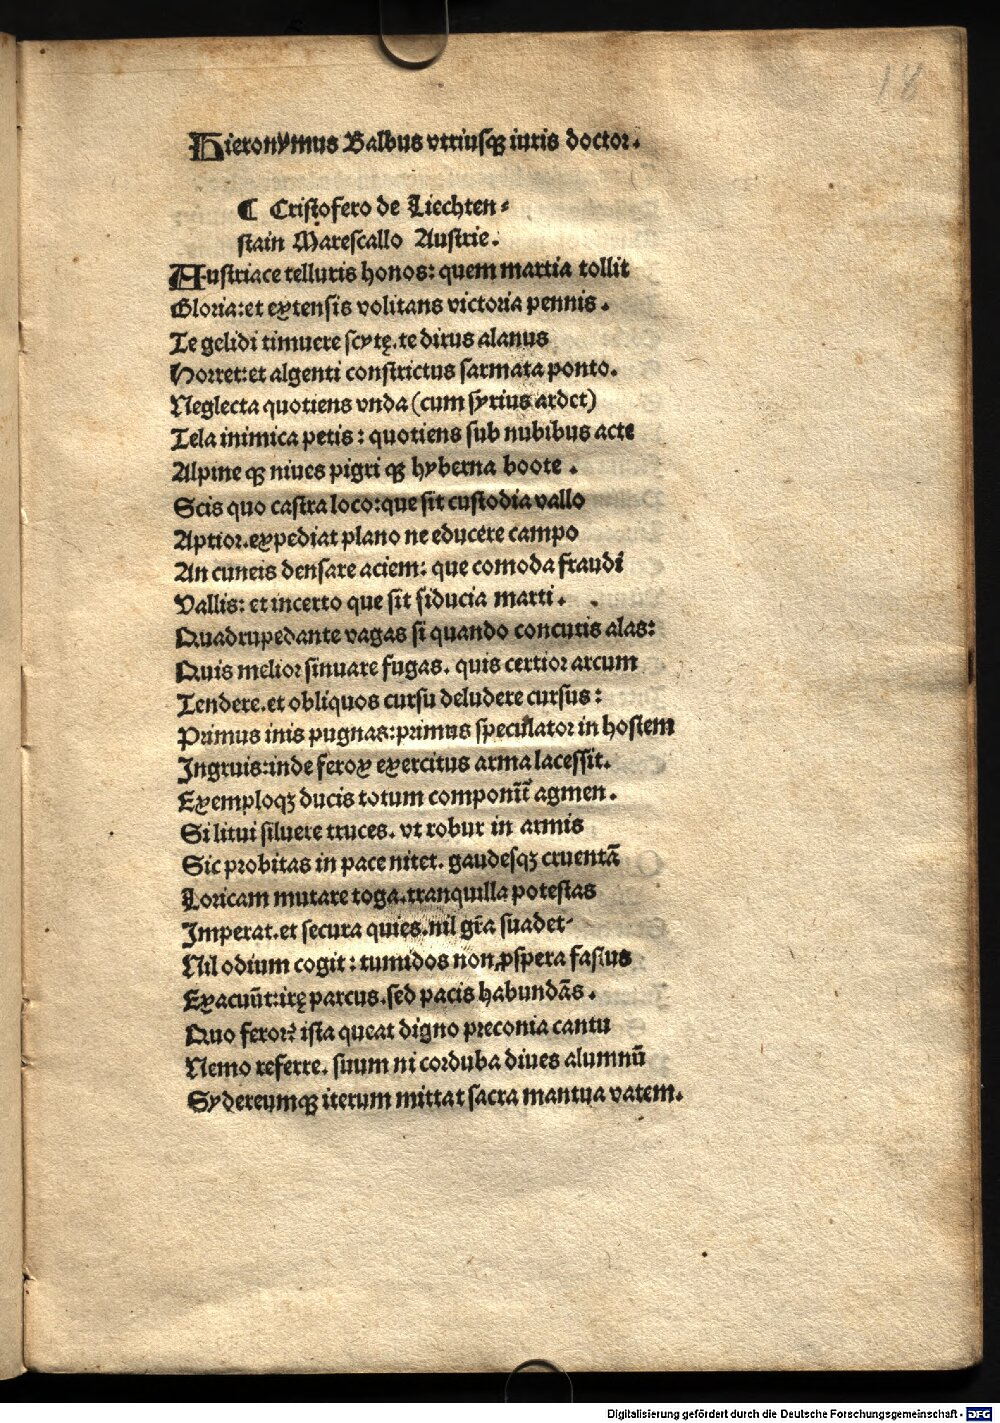 18
Hieronymus Balbus vtriusqȝ iuris doctor.
¶ Cristofero de Liechten⸗
stain Marescallo Austrie.
Austriace telluris honos: quem martia tollit
Gloria: et extensis volitans victoria pennis.
Te gelidi timuere scytę. te dirus alanus
Horret: et algenti constrictus sarmata ponto.
Neglecta quotiens vnda (cum syrius ardet)
Tela inimica petis: quotiens sub nubibus acte
Alpine qȝ niues pigri qȝ hyberna boote.
Scis quo castra loco: que sit custodia vallo
Aptior. expediat plano ne educere campo
An cuneis densare aciem: que comoda fraudi
Vallis: et incerto que sit fiducia marti.
Quadrupedante vagas si quando concutis alas:
Quis melior sinuare fugas. quis certior arcum
Tendere. et obliquos cursu deludere cursus:
Primus inis pugnas: primus speculator in hostem
Ingruis: inde ferox exercitus arma lacessit.
Exemploqȝ ducis totum componit̄ agmen.
Si litui siluere truces. vt robur in armis
Sic probitas in pace nitet. gaudesqȝ cruentā
Loricam mutare toga. tranquilla potestas
Imperat. et secura quies. nil gr̄a suadet
Nil odium cogit: tumidos non ꝓspera fastus
Exacuūt: irę parcus. sed pacis habundās.
Quo feror? ista queat digno preconia cantu
Nemo referre. suum ni corduba diues alumnū
Sydereumqȝ iterum mittat sacra mantua vatem.
Digitalisierung gefördert durch die Deutsche Forschungsgemeinschaft - DFG